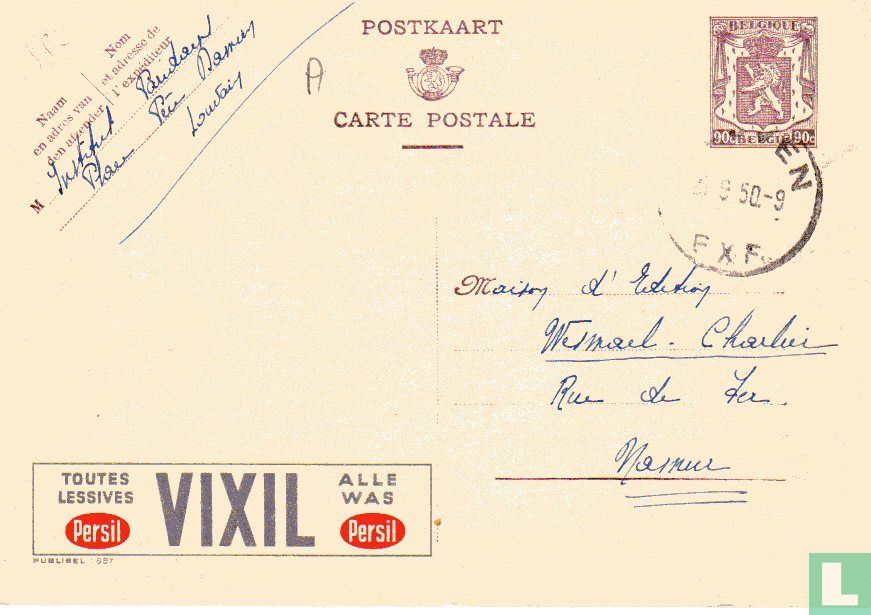 POSTKAART
CARTE POSTALE
BELGIQUE
90c BELGIE 90c
Nom
et adresse de
l'expéditeur
Naam
en adres van
den afzender
M
Institut
Place Père Damien
Louvain
A
EN
9 50.-9
Maison d'Edition
Wesmael-Charlier
Rue de Fer.
Namur
TOUTES
LESSIVES
Persil
VIXIL
ALLE
WAS
Persil
PUBLIBEL : 887
L